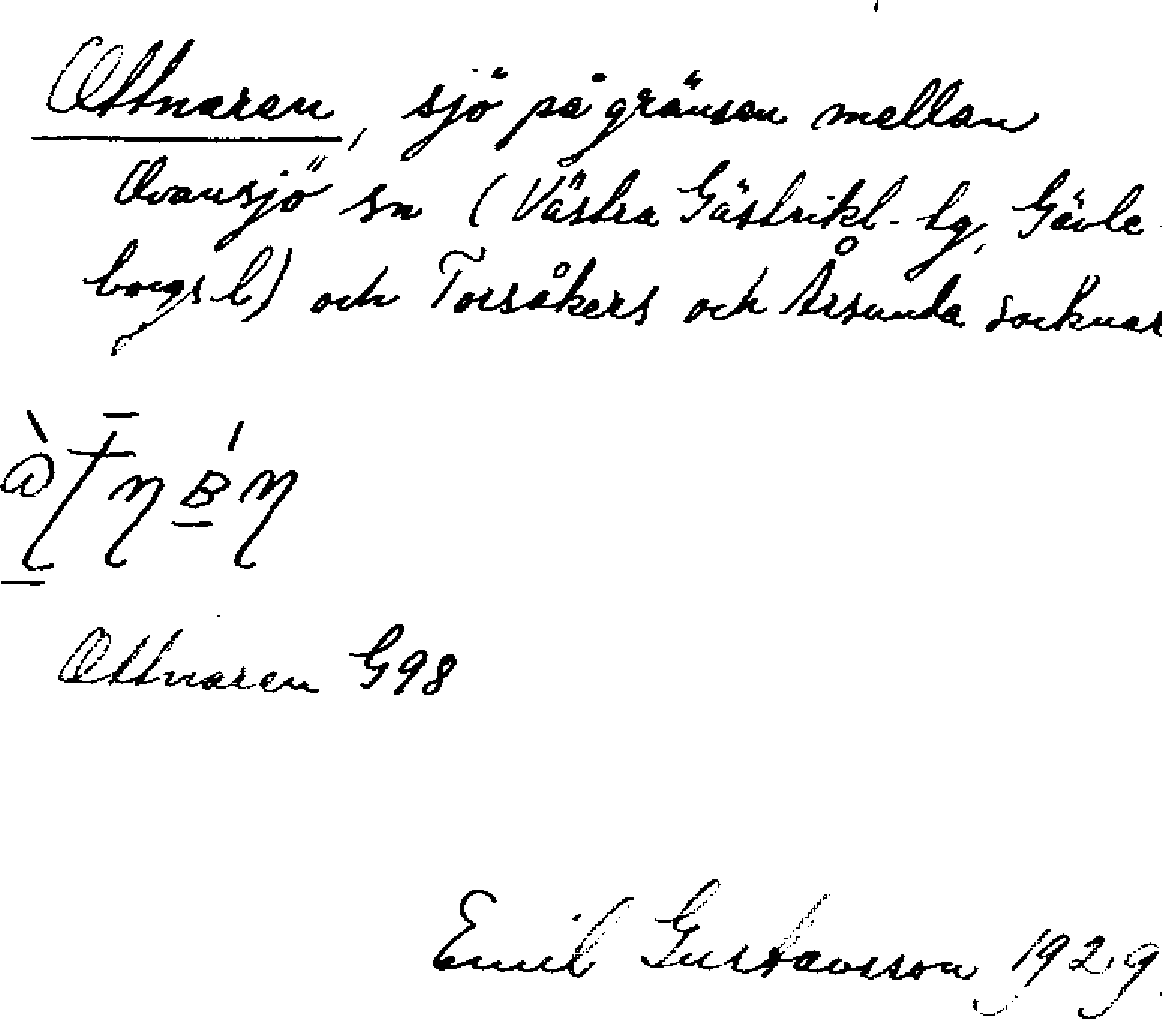 Ottnaren, sjö på gränsen mellan
Ovansjö sn (Västra Gästrikl. tg, Gävle-
borgs l) och Torsåkers och Årsunda socknar
Ottnaren G98
Emil Gustavsson 1929.